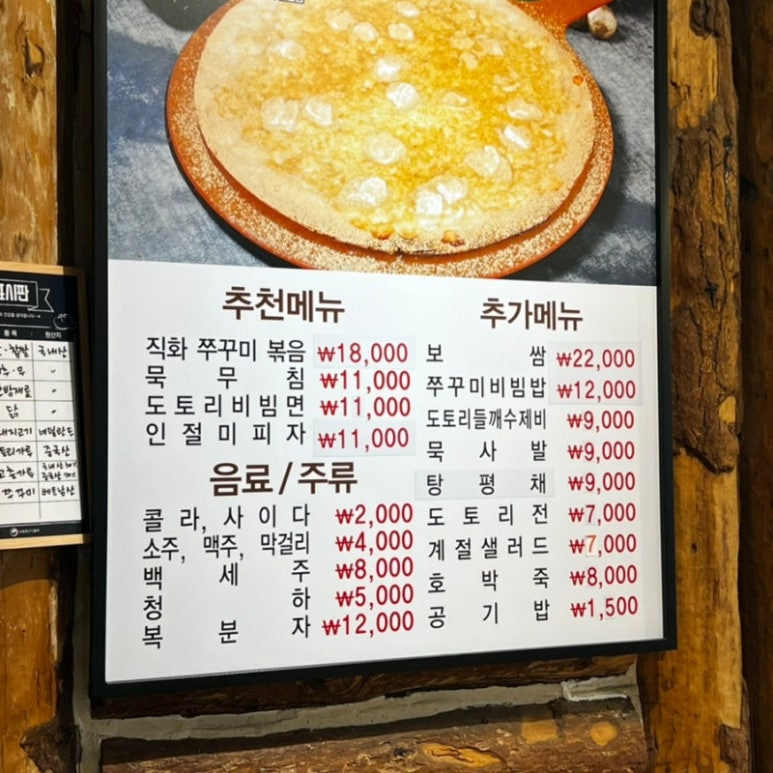 추천메뉴
직화 쭈꾸미 볶음 ₩18,000
묵무침 ₩11,000
도토리비빔면 ₩11,000
인절미피자 ₩11,000
음료/주류
콜라,사이다 ₩2,000
소주, 맥주, 막걸리 ₩4,000
백세주 ₩8,000
청하 ₩5,000
복분자 ₩12,000
추가메뉴
보쌈 ₩22,000
쭈꾸미비빔밥 ₩12,000
도토리들깨수제비 ₩9,000
묵사발 ₩9,000
탕평채 ₩9,000
도토리전 ₩7,000
계절샐러드 ₩7,000
호박죽 ₩8,000
공기밥 ₩1,500
표시판
품목 원산지
국내산
닭 〃
네덜란드
중국산
베트남산